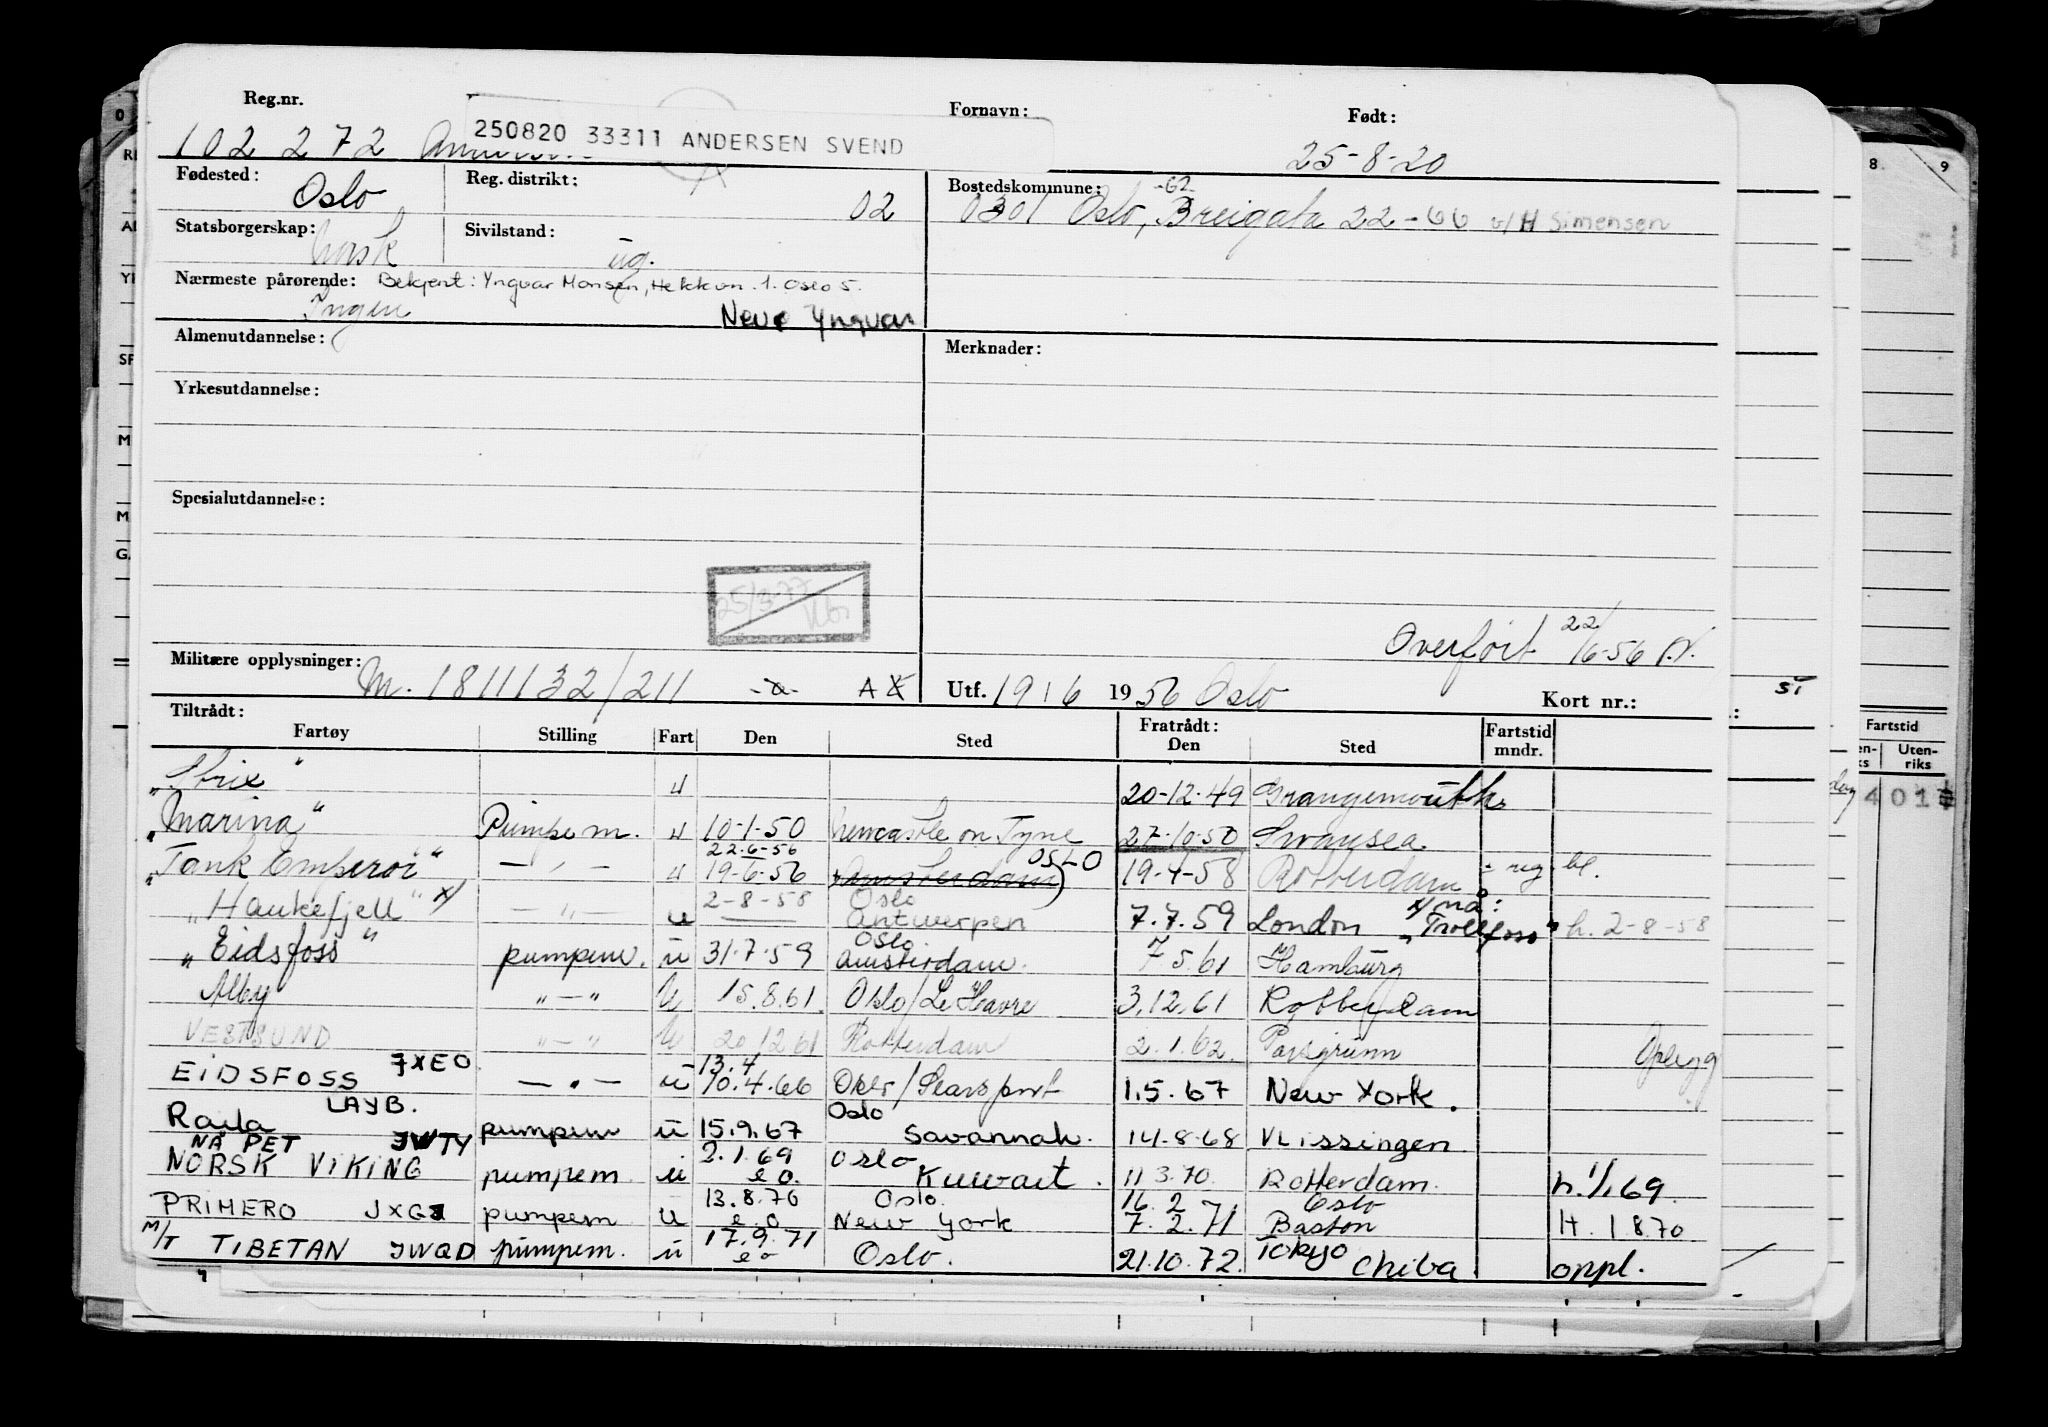 Reg.nr. Fornavn: Født:
102 272 250820 33311 ANDERSEN SVEND 25-8-20
Fødested: Oslo Reg. distrikt: 02 Bostedskommune: -62
0301 Oslo, Breigata 22-66 v/H Simensen
Statsborgerskap: Norsk Sivilstand: ug.
Nærmeste pårørende: Bekjent: Yngvar Monsen, Hekkvn. 1. Oslo 5.
Ingen Nevø Yngvar
Almenutdannelse: Merknader:
Yrkesutdannelse:
Spesialutdannelse:
25/3-77
Overført 22/6-56
Militære opplysninger: M. 1811132/211 -a- A X Utf. 19/6 1956 Oslo Kort nr.:
Tiltrådt: Fratrådt: Fartstid
Fartøy Stilling Fart Den Sted Den Sted mndr.
"Strix" u 20-12-49 Grangemouth
"Marina" Pumpem. u 10-1-50 Newcastle on Tyne 27-10-50 Swansea
22.6-56 OSLO
"Tank Emperor" — " — u 19-6-56 Amsterdam) 19-4-58 Rotterdam - reg bl.
2-8-58 Oslo x/ nå:
"Haukefjell" x) — " — u Antwerpen 7.7.59 London "Trollfoss" h. 2-8-58
Oslo
"Eidsfoss" pumpem. u 31.7.59 Amsterdam. 7.5.61 Hamburg
Alby " — " U 15.8.61. Oslo/Le Havre 3.12.61 Rotterdam
VESTSUND " — " U 20/12 61 Rotterdam 2.1.62. Porsgrunn Opplegg
JXEO 13.4
EIDSFOSS — " — u 10.4.66 Oslo/Searsport 1.5.67 New York.
LAYB. Oslo
Raila pumpem u 15.9.67 Savannah. 14-8-68 Vlissingen
NÅ PET JWTY 2.1.69 Oslo
NORSK VIKING pumpem. u e o. Kuwait. 11 3.70. Rotterdam. h. 1/1 69.
13.8.70 Oslo. 16.2 Oslo
PRIMERO JXGI pumpem u e. o New York 7.2.71 Baston H. 1.8.70
17.9.71 Tokyo
M/T TIBETAN JWQD pumpem. u eo Oslo. 21.10.72. Chiba oppl.
8. 9
Fartstid
Uten-
riks
401